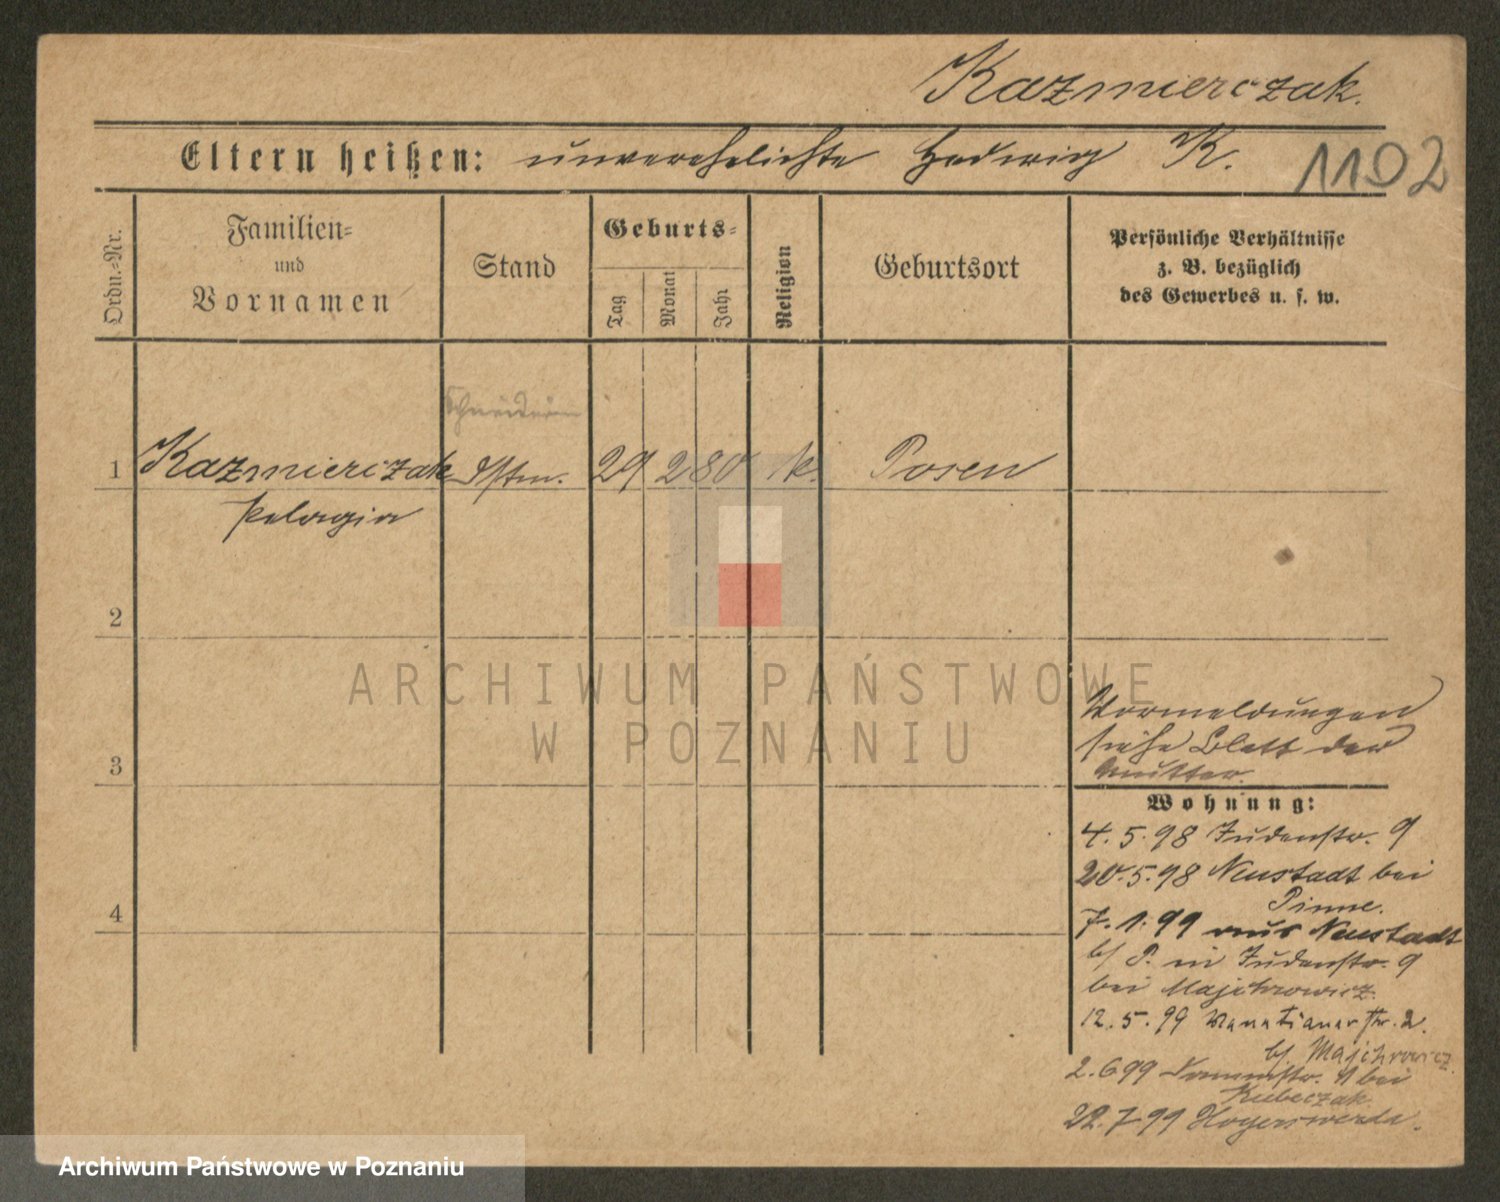 Kazmierczak.
Eltern heißen: unverehelichte Hedwig K.
1102
Ordn.-Nr.
Familien-
und
Vornamen
Stand
Geburts-
Tag
Monat
Jahr
Religion
Geburtsort
Persönliche Verhältnisse
z. B. bezüglich
des Gewerbes u. s. w.
Schneiderin
1 Kazmierczak 29 2 80 k. Posen
Pelagia
2
ARCHIWUM PAŃSTWOWE
W POZNANIU
Vormeldungen
siehe Blatt der
Mutter.
3
Wohnung:
4.5.98 Judenstr. 9
20.5.98 Neustadt bei
Pinne.
4
7.1.99 aus Neustadt
b/ P. in Judenstr. 9
bei Majchrowicz.
12.5.99 Venetianerstr. 2.
b/ Majchrowicz.
2.6.99 Dammstr. 1 bei
Kubeczak
22.7.99 Hoyerswerda.
Archiwum Państwowe w Poznaniu